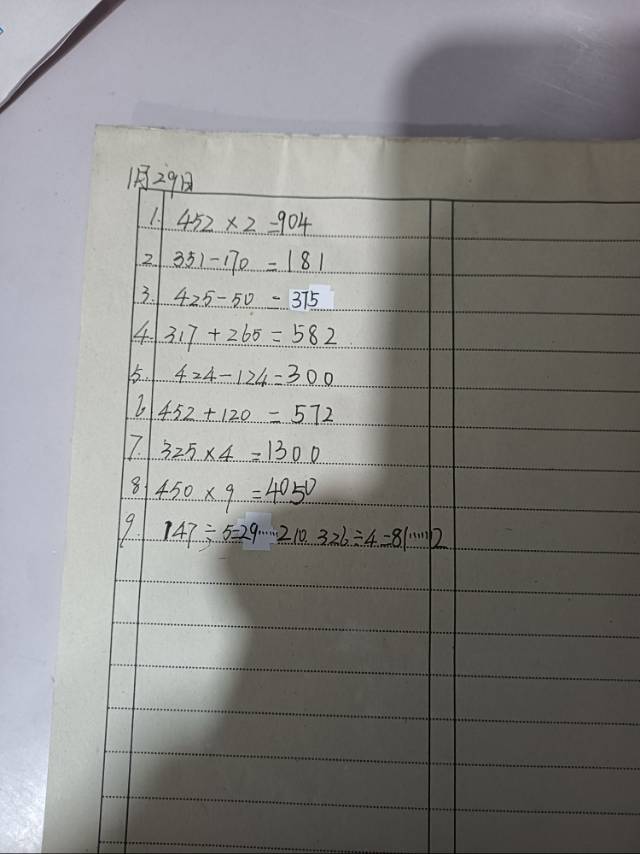 1月29日
1. 452×2=904
2. 351-170=181
3. 425-50=375
4. 317+265=582
5. 424-124=300
6. 452+120=572
7. 325×4=1300
8. 450×9=4050
9. 147÷5=29……2 10. 326÷4=81……2